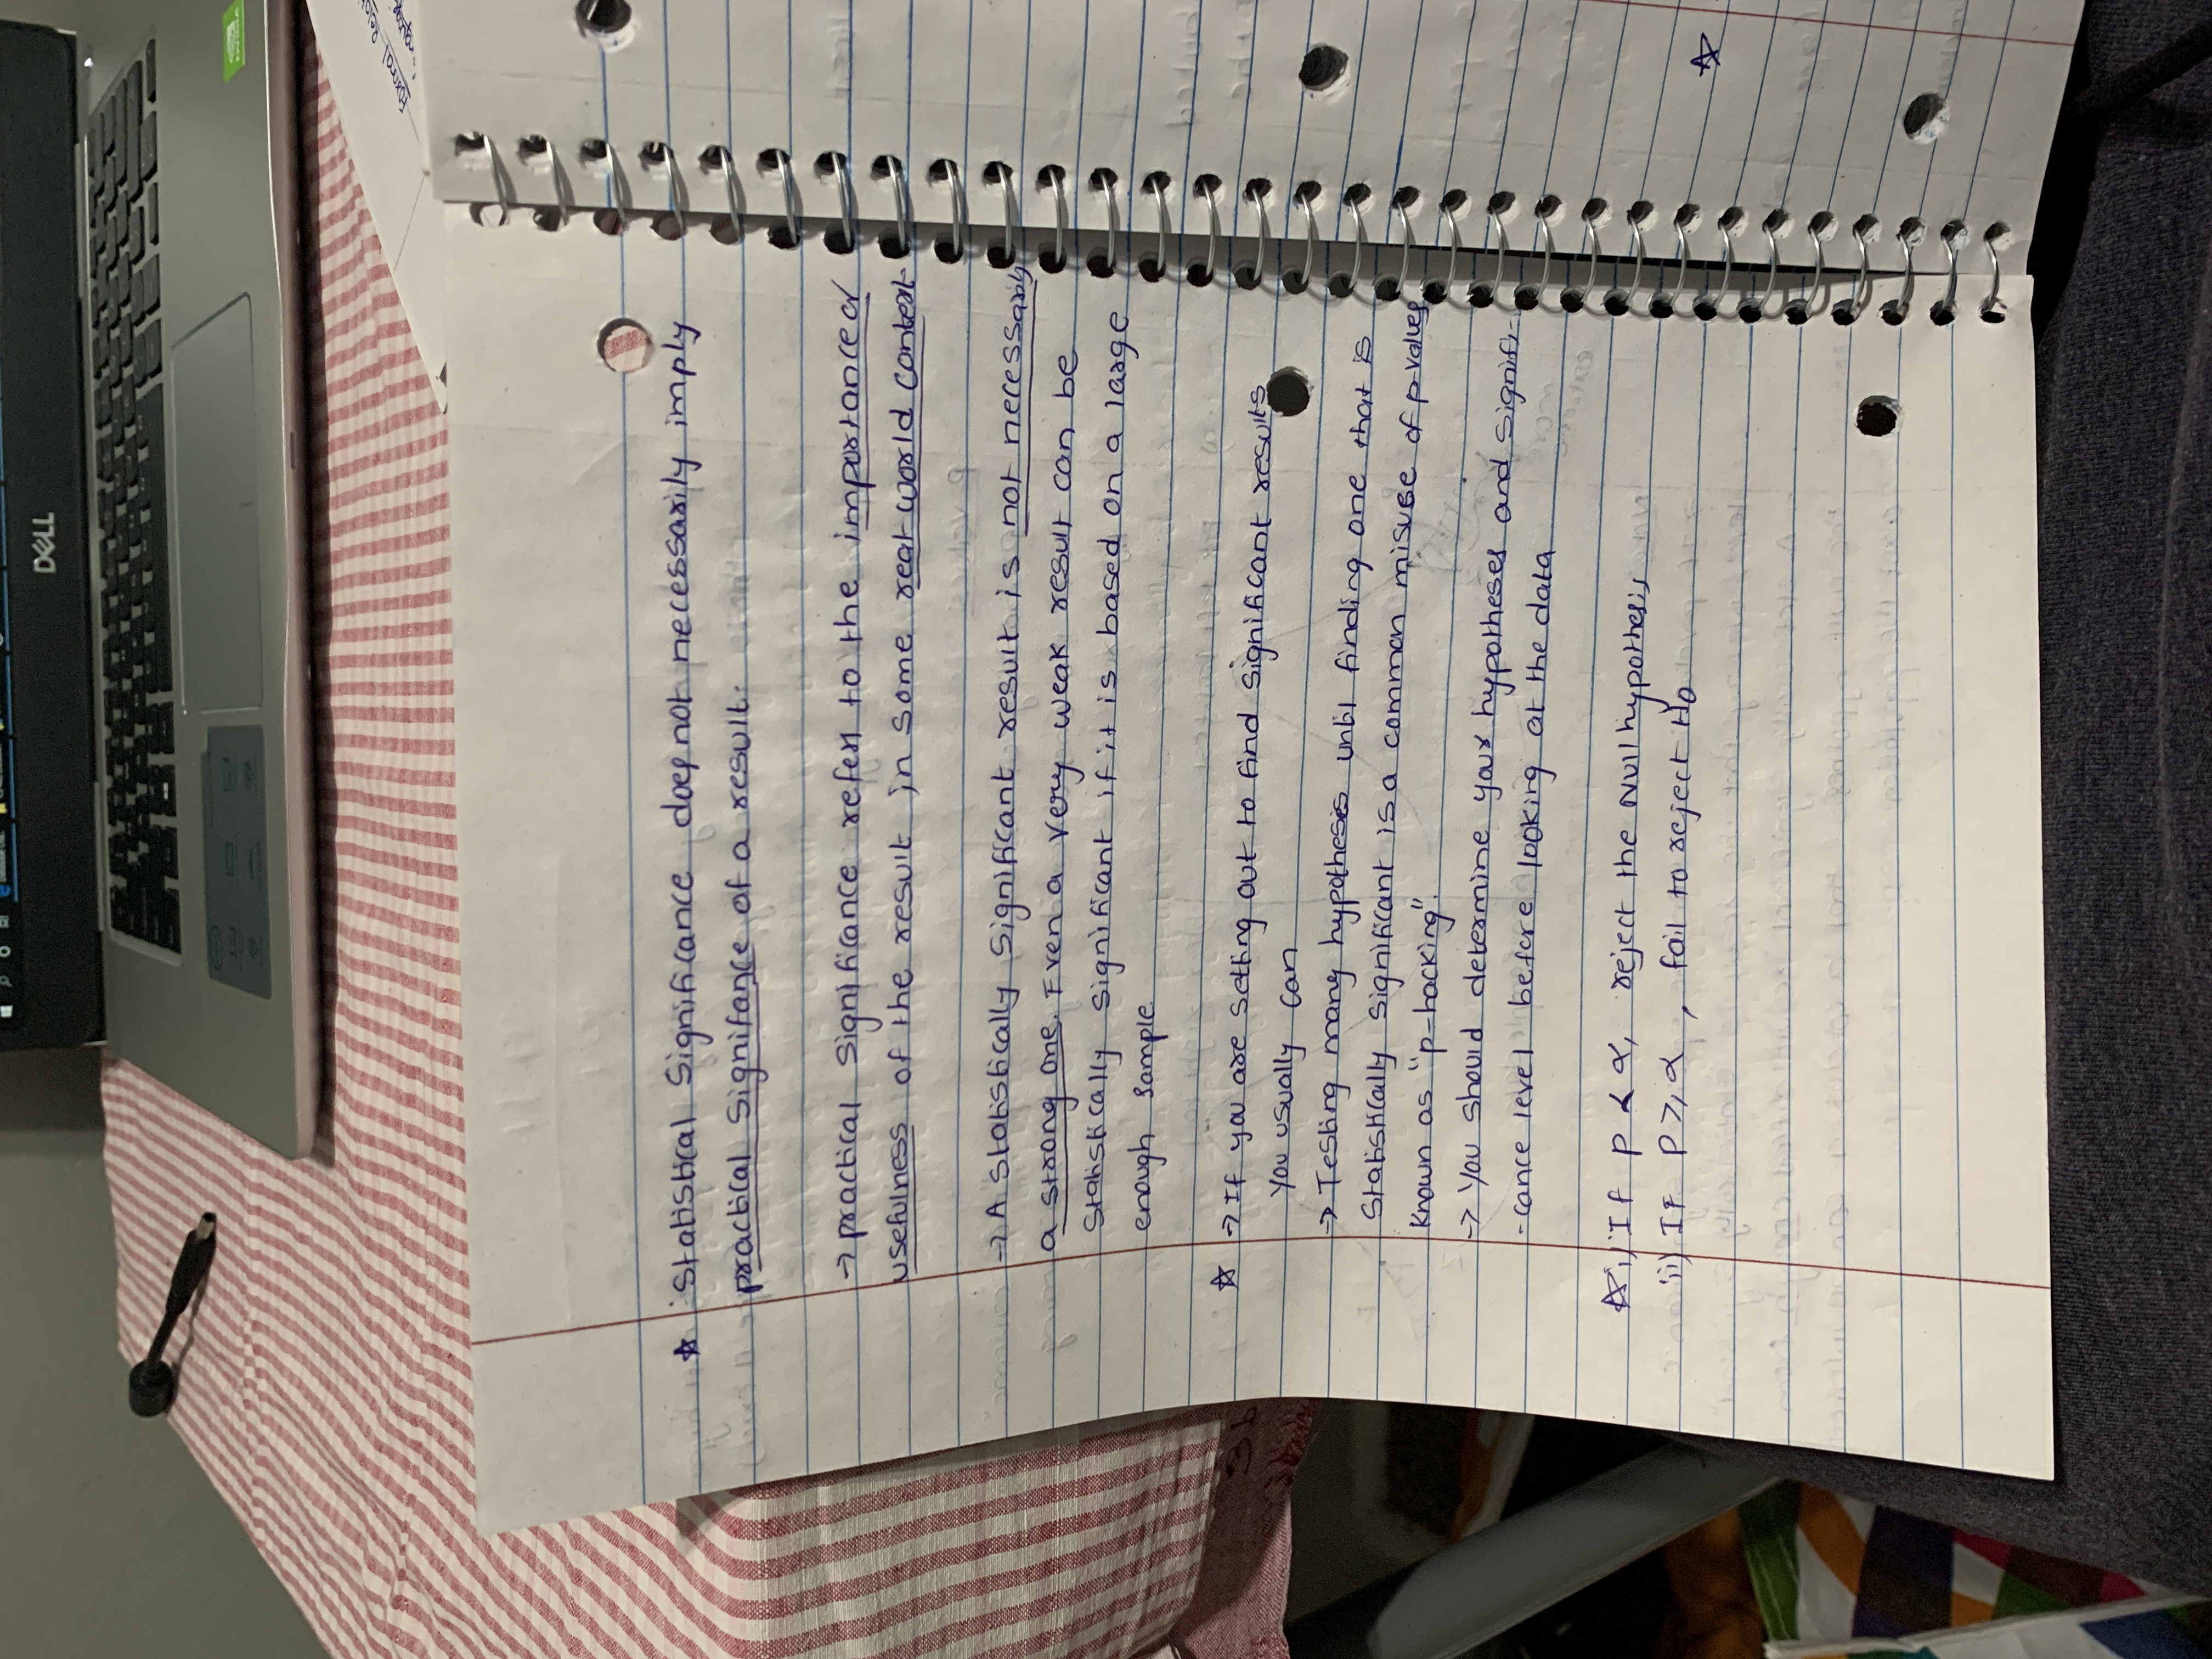 DELL
NVIDIA
Formal Relat
☆ Statistical Significance does not necessarily imply
practical Signifance of a result.
→ practical Significance refers to the importance or
usefulness of the result in some real world context
→ A statistically significant result is not necessarily
a strong one. Even a very weak result can be
statistically significant if it is based on a large
enough sample.
☆ → If you are setting out to find significant results
you usually can
→ Testing many hypothesis until finding one that is
statistically significant is a common misuse of p-values
known as "p-hacking".
→ You should determine your hypotheses and signifi-
-cance level before looking at the data
☆ i) If p < α, reject the Null hypothesis
ii) If p ≥ α, fail to reject H0
☆